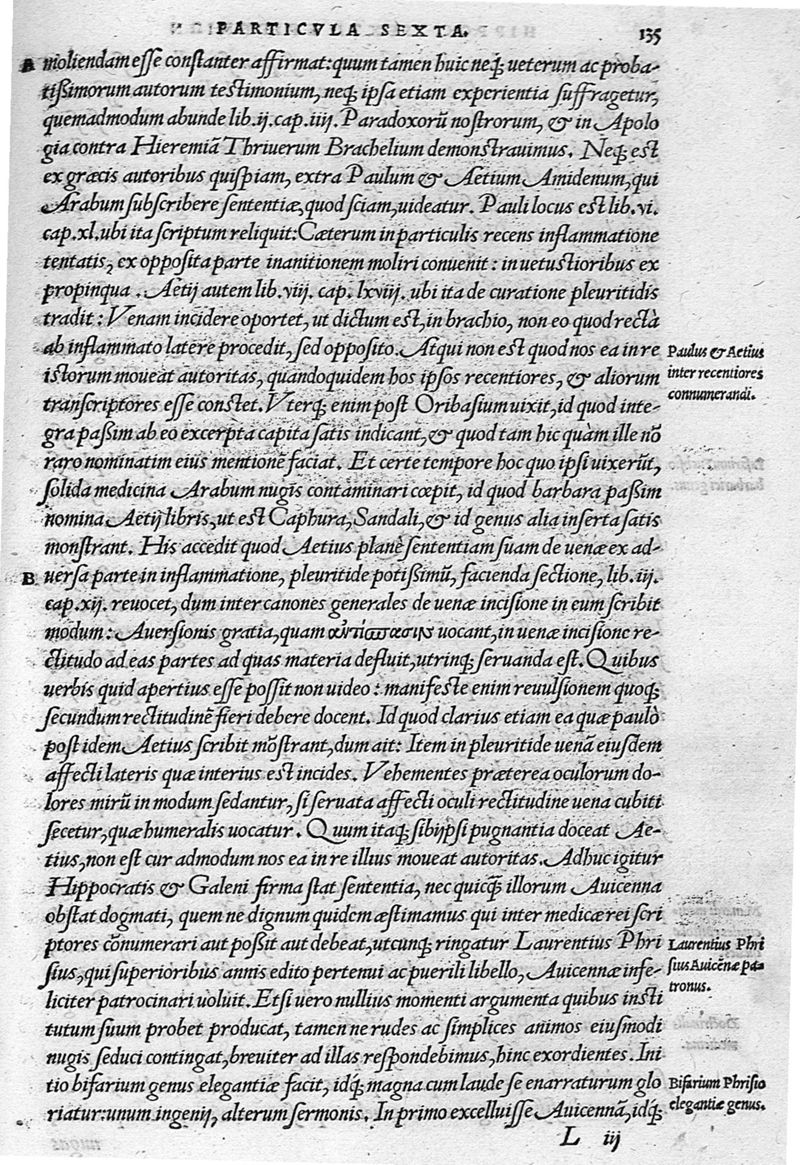 PARTICVLA SEXTA.
135
A moliendam esse constanter affirmat: quum tamen huic neq; ueterum ac proba-
tißimorum autorum testimonium, neq; ipsa etiam experientia suffragetur,
quemadmodum abunde lib.ij.cap.iiij. Paradoxorũ nostrorum, & in Apolo
gia contra Hieremiã Thriuerum Brachelium demonstrauimus. Neq; est
ex græcis autoribus quispiam, extra Paulum & Aetium Amidenum, qui
Arabum subscribere sententiæ, quod sciam, uideatur. Pauli locus est lib.vi.
cap.xl. ubi ita scriptum reliquit: Cæterum in particulis recens inflammatione
tentatis, ex opposita parte inanitionem moliri conuenit: in uetustioribus ex
propinqua. Aetij autem lib.viij. cap. lxviij. ubi ita de curatione pleuritidis
tradit: Venam incidere oportet, ut dictum est, in brachio, non eo quod rectà
ab inflammato latere procedit, sed opposito. Atqui non est quod nos ea in re
istorum moueat autoritas, quandoquidem hos ipsos recentiores, & aliorum
transcriptores esse constet. Vterq; enim post Oribasium uixit, id quod inte-
gra paßim ab eo excerpta capita satis indicant, & quod tam hic quàm ille nõ
raro nominatim eius mentionẽ faciat. Et certe tempore hoc quo ipsi uixerũt,
solida medicina Arabum nugis contaminari cœpit, id quod barbara paßim
nomina Aetij libris, ut est Caphura, Sandali, & id genus alia inserta satis
monstrant. His accedit quod Aetius planè sententiam suam de uenæ ex ad-
B uersa parte in inflammatione, pleuritide potißimũ, facienda sectione, lib. iij.
cap.xij. reuocet, dum inter canones generales de uenæ incisione in eum scribit
modum: Auersionis gratia, quam ἀντίσπασιν uocant, in uenæ incisione re-
ctitudo ad eas partes ad quas materia defluit, utrinq; seruanda est. Quibus
uerbis quid apertius esse possit non uideo: manifeste enim reuulsionem quoq;
secundum rectitudinẽ fieri debere docent. Id quod clarius etiam ea quæ paulò
post idem Aetius scribit mõstrant, dum ait: Item in pleuritide uenã eiusdem
affecti lateris quæ interius est incides. Vehementes præterea oculorum do-
lores mirũ in modum sedantur, si seruata affecti oculi rectitudine uena cubiti
secetur, quæ humeralis uocatur. Quum itaq; sibijpsi pugnantia doceat Ae-
tius, non est cur admodum nos ea in re illius moueat autoritas. Adhuc igitur
Hippocratis & Galeni firma stat sententia, nec quicq̃ illorum Auicenna
obstat dogmati, quem ne dignum quidem æstimamus qui inter medicæ rei scri
ptores cõnumerari aut poßit aut debeat, utcunq; ringatur Laurentius Phri
sius, qui superioribus annis edito pertenui ac puerili libello, Auicennæ infe-
liciter patrocinari uoluit. Etsi uero nullius momenti argumenta quibus insti
tutum suum probet producat, tamen ne rudes ac simplices animos eiusmodi
nugis seduci contingat, breuiter ad illas respondebimus, hinc exordientes. Ini
tio bifarium genus elegantiæ facit, idq; magna cum laude se enarraturum glo
riatur: unum ingenij, alterum sermonis. In primo excelluisse Auicennã, idq;
L iij
Paulus & Aetius
inter recentiores
connumerandi.
Laurentius Phri
sius Auicẽnæ pa-
tronus.
Bifarium Phrisio
elegantiæ genus.